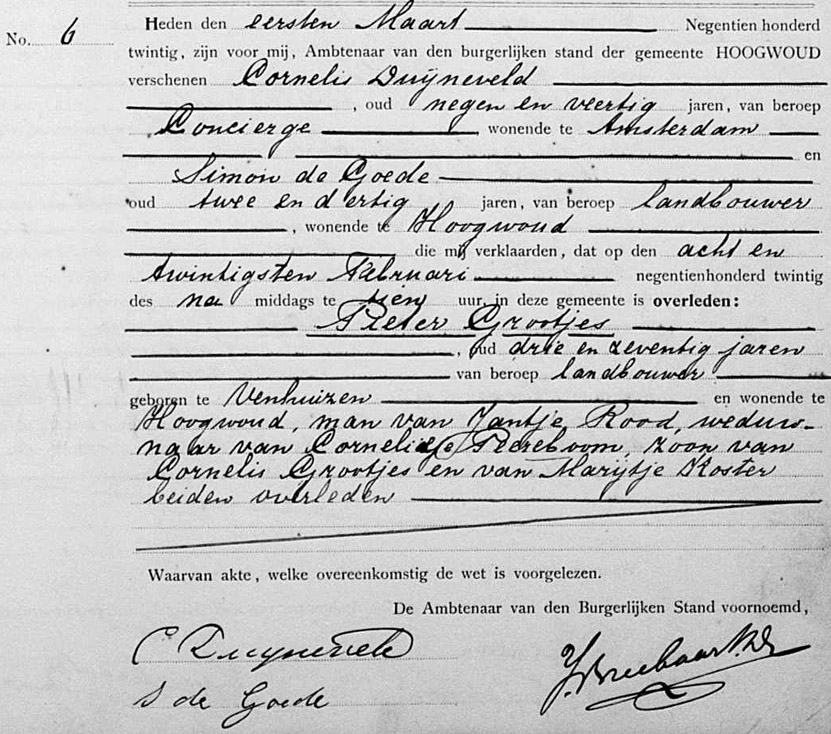 No. 6
Heden den eersten Maart Negentien honderd
twintig, zijn voor mij, Ambtenaar van den burgerlijken stand der gemeente HOOGWOUD
verschenen Cornelis Duijneveld
, oud negen en veertig jaren, van beroep
Concierge, wonende te Amsterdam
en
Simon de Goede
oud twee en dertig jaren, van beroep landbouwer
, wonende te Hoogwoud
die mij verklaarden, dat op den acht en
twintigsten Februari negentienhonderd twintig
des na middags te tien uur, in deze gemeente is overleden:
Pieter Grootjes
, oud drie en zeventig jaren
van beroep landbouwer
geboren te Venhuizen en wonende te
Hoogwoud, man van Jantje Rood, weduw-
naar van Peereboom, zoon van
Cornelis Grootjes en van Marijtje Koster
beiden overleden
Waarvan akte, welke overeenkomstig de wet is voorgelezen.
De Ambtenaar van den Burgerlijken Stand voornoemd,
C Duyneveld
S de Goede